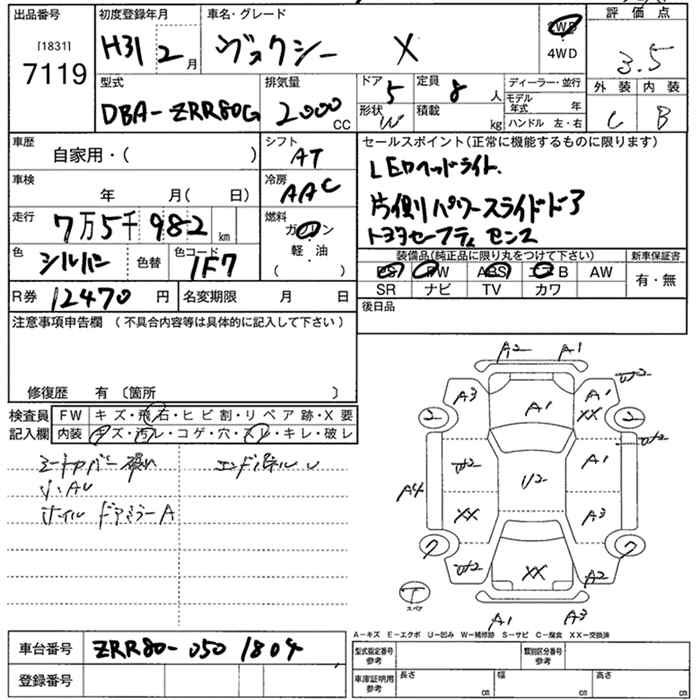 出品番号 初度登録年月 車名・グレード 評価点
[1831] H31 2月 ヴォクシー X 2WD 3.5
7119 4WD
外装 内装
型式 排気量 ドア 5 定員 8人 ディーラー・並行
DBA-ZRR80G 2000CC 形状 W 積載 kg モデル年式 年 C B
ハンドル 左・右
車歴 シフト セールスポイント(正常に機能するものに限ります)
自家用・( ) AT LEDヘッドライト
車検 冷房
年 月( 日) AAC 片側パワースライドドア
走行 燃料
7万5千982km ガソリン トヨタセーフティセンス
色 色替 色コード 軽油 装備品(純正品に限り丸をつけて下さい) 新車保証書
シルバー 1F7 ( ) PS PW ABS エアB AW 有・無
R券 12470円 名変期限 月 日 SR ナビ TV カワ
注意事項申告欄 (不具合内容等は具体的に記入して下さい) 後日品
修復歴 有 〔箇所 〕
検査員 FW キズ・飛石・ヒビ割・リペア跡・X要
記入欄 内装 キズ・汚レ・コゲ・穴・スレ・キレ・破レ
シートカバー エンドパネルU
小AU
ホイル ドアミラーA
A2 A1
A3 A1 A1 W2
XX
2 2
U2 U2 A1 W2
A4 XX A3
7 7
U2 XX A2
T スペア
A1 A3
A-キズ E-エクボ U-凹み W-補修跡 S-サビ C-腐食 XX-交換済
車台番号 ZRR80-0501804 型式指定番号 参考 類別区分番号 参考
登録番号 車庫証明用 参考 長さ cm 幅 cm 高さ cm